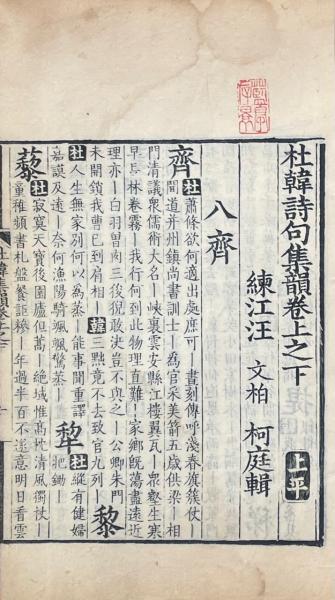 杜韓詩句集韻卷上之下 上平
練江汪 文柏 柯庭輯
八齊
齊 杜 蕭條欲何適出處庶可丨晝刻傳呼淺春旗簇仗丨
間道并州鎮尚書訓士丨為官采美箭五歲供梁丨相
門清議眾儒術大名丨峽裏雲安縣江樓翼瓦丨眾壑生寒
早長林卷霧丨我行何到此物理直難丨家鄉既蕩盡遠近
理亦丨白羽曾肉三後猊敢決豈不與之丨公卿朱門
未開鎖我曹已到肩相丨 韓 三黜竟不去致官九列丨 黎
杜 人生無家別何以為蒸丨能事聞重譯
嘉謨及遠丨奈何漁陽騎颯颯驚蒸丨 犂 杜 縱有健婦
把鋤丨
藜 杜 寂寞天寶後園廬但蒿丨絕域惟高枕清風獨杖丨
童稚頻書札盤餐詎糝丨年過半百不遂意明日看雲